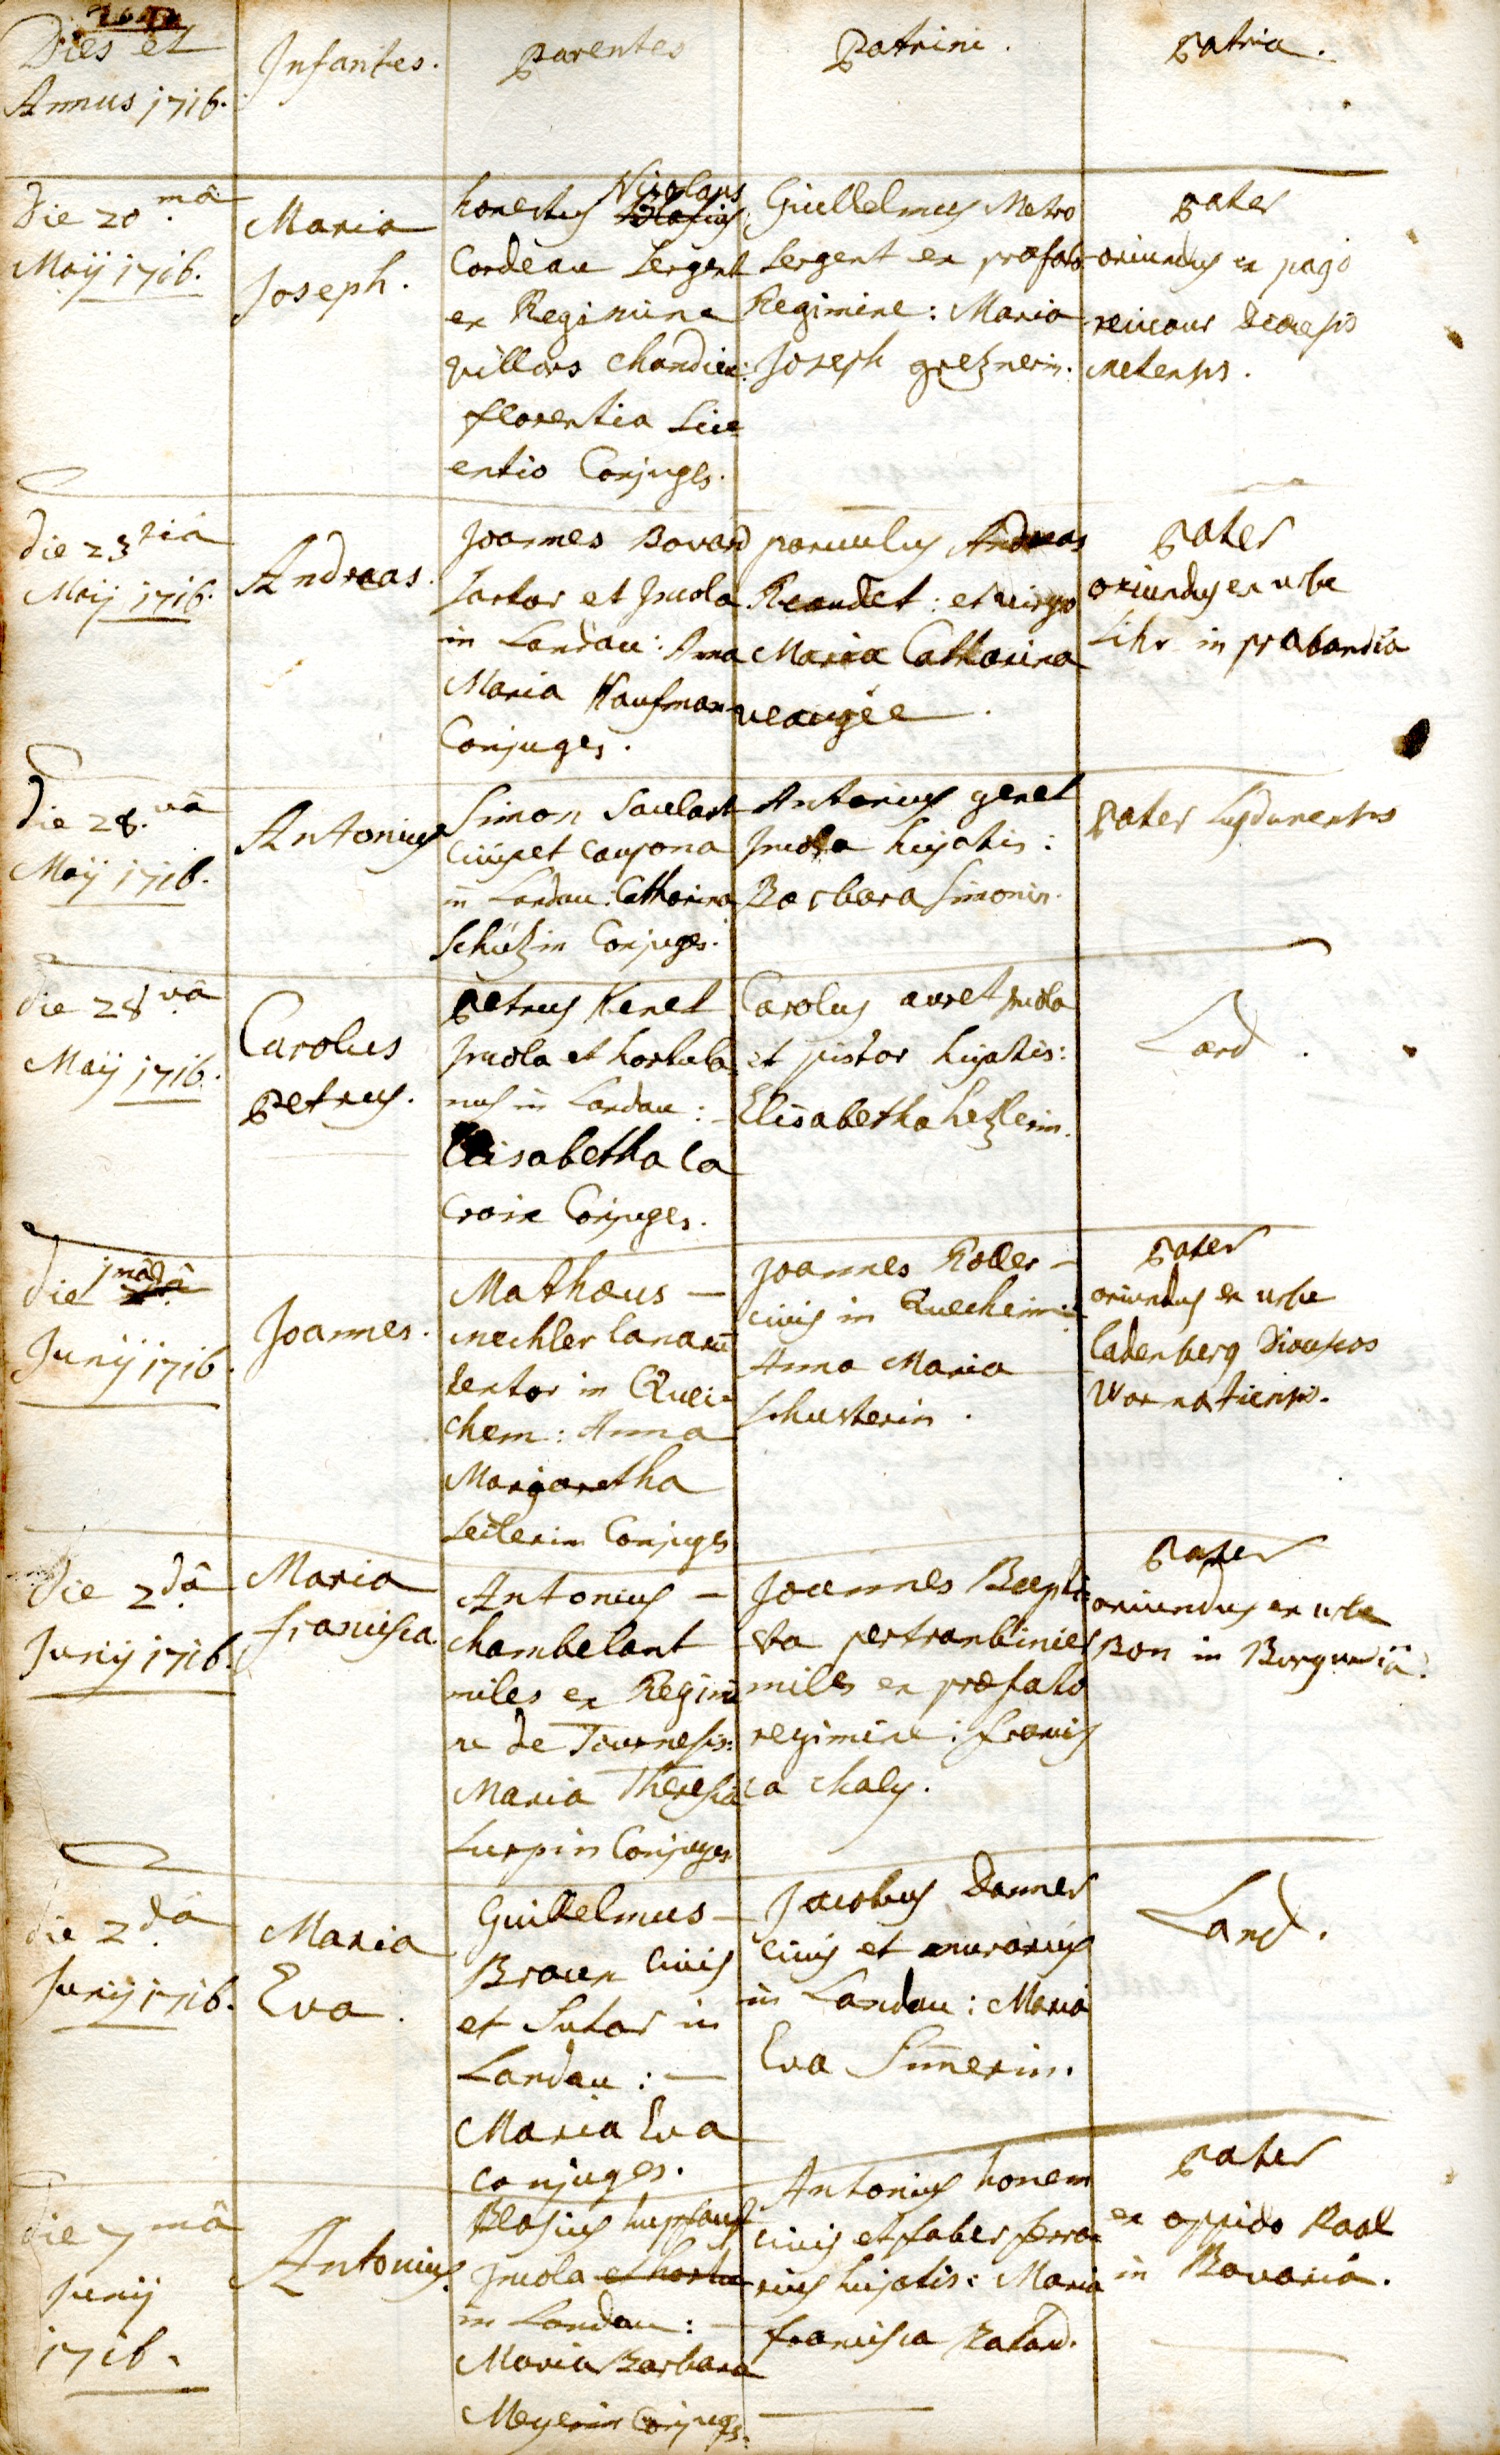 Dies et
Annus 1716.
Infantes.
Parentes
Patrini.
Patria.
Die 20 mâ
Maij 1716.
Maria
Joseph.
honestus Nicolaus
Cordeau Sergent
ex Regimine
villars chandieu:
florentia Lice
entio Conjuges.
Guillelmus Metro
Sergent ex præfato
Regimine: Maria
Joseph gretznerin.
Pater
oriundus ex pago
Dioecesis
Metensis.
Die 23 tiâ
Maij 1716.
Andreas.
Joannes Bovard
Sartor et Incola
in Landau: Anna
Maria Kaufman
Conjuges.
parvulus Andreas
Reaudet: et virgo
Maria Catharina
veaugée.
Pater
oriundus ex urbe
Lihr in prabandia
Die 28. vâ
Maij 1716.
Antonius
Simon Saulart
Civis et caupona
in Landau: Catharina
Schützin Conjuges.
Antonius genet
Incola hujatis:
Barbara Simonin.
Pater Lugdunensis
Die 28 vâ
Maij 1716.
Carolus
Petrus.
Petrus Kenel
Incola et hortula
nus in Landau:
Elisabetha la
Croix Conjuges.
Carolus auret Incola
et pistor hujatis:
Elisabetha hetzlerin.
Land.
Die 1mâ
Junij 1716.
Joannes.
Mathæus —
Mechler lanarū
tentor in Quei=
chem: Anna
Margaretha
Seilerin Conjuges
Joannes Koller —
Civis in Quecheim:
Anna Maria
Schusterin.
Pater
oriundus ex urbe
Ladenberg Dioecesos
Wormatiensis.
Die 2 dâ
Junij 1716.
Maria
francisca.
Antonius —
chambelant
miles ex Regimi
ne de Tournesis:
Maria Theresia
Luppin Conjuges
Joannes Bapti=
sta
miles ex præfato
regimine: francis
ca chaly.
Pater
oriundus ex urbe
Bon in Burgundiâ.
Die 2 dâ
Junij 1716.
Maria
Eva.
Guillelmus —
Braun Civis
et Sutor in
Landau: —
Maria Eva
conjuges.
Jacobus Danner
Civis et murarius
in Landau: Maria
Eva Simerin.
Land.
Die 7 mâ
Junij
1716.
Antonius.
Blasius hupfauf
Incola et hortu
in Landau: —
Maria Barbara
Meyerin Conjuges.
Antonius honem
civis et faber ferra=
rius hujatis: Maria
francisca Batard.
Pater
ex oppido Raal
in Bavariâ.